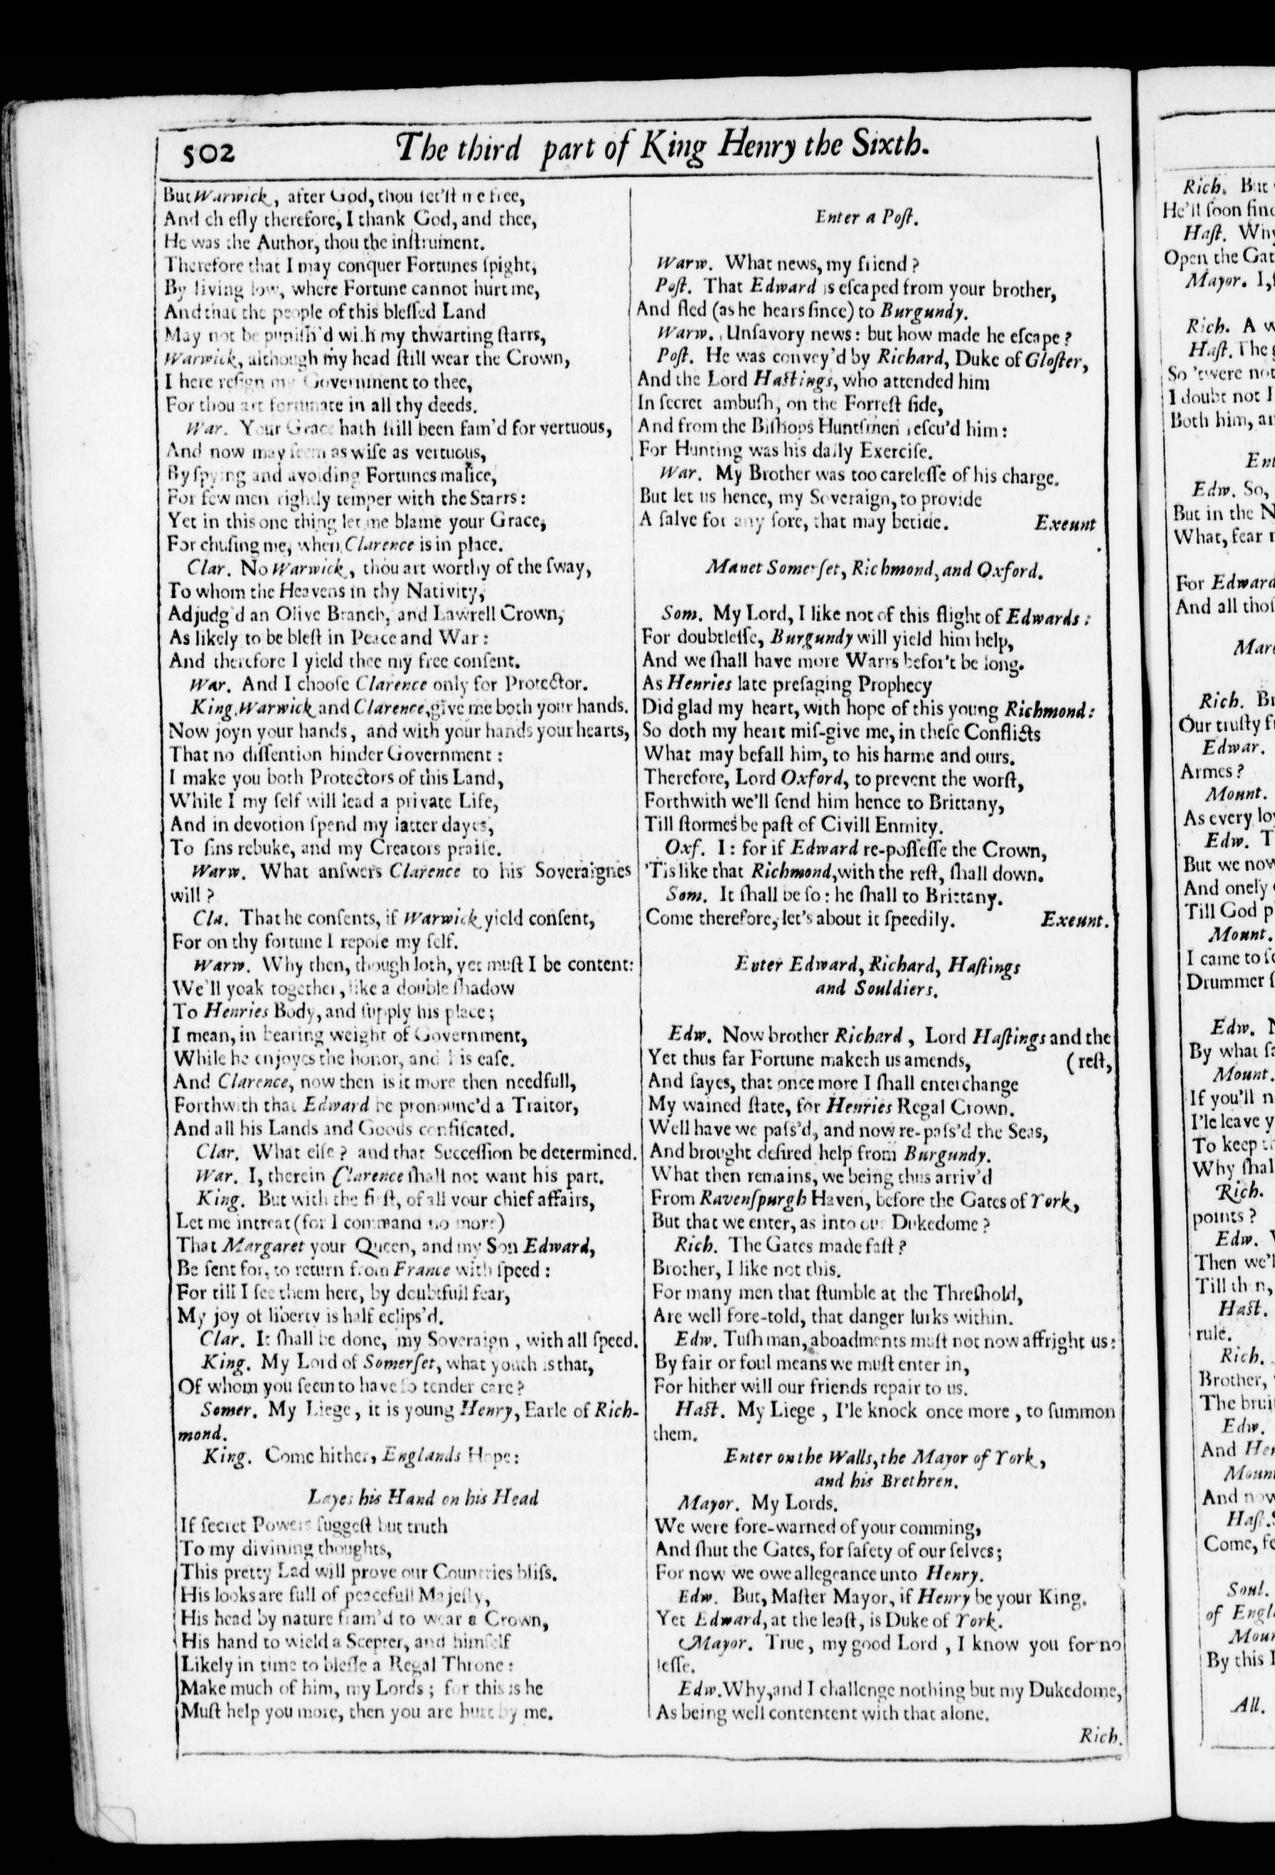 502
The third part of King Henry the Sixth.
But Warwick, after God, thou set'st me free,
And chiefly therefore, I thank God, and thee,
He was the Author, thou the instrument.
Therefore that I may conquer Fortunes spight,
By living low, where Fortune cannot hurt me,
And that the people of this blessed Land
May not be punish'd with my thwarting starrs,
Warwick, although my head still wear the Crown,
I here resign my Government to thee,
For thou art fortunate in all thy deeds.
War. Your Grace hath still been fam'd for vertuous,
And now may seem as wise as vertuous,
By spying and avoiding Fortunes malice,
For few men rightly temper with the Starrs:
Yet in this one thing let me blame your Grace,
For chusing me, when Clarence is in place.
Clar. No Warwick, thou art worthy of the sway,
To whom the Heavens in thy Nativity,
Adjudg'd an Olive Branch, and Lawrell Crown,
As likely to be blest in Peace and War:
And therefore I yield thee my free consent.
War. And I choose Clarence only for Protector.
King. Warwick and Clarence, give me both your hands.
Now joyn your hands, and with your hands your hearts,
That no dissention hinder Government:
I make you both Protectors of this Land,
While I my self will lead a private Life,
And in devotion spend my latter dayes,
To sins rebuke, and my Creators praise.
Warw. What answers Clarence to his Soveraignes
will?
Cla. That he consents, if Warwick yield consent,
For on thy fortune I repose my self.
Warw. Why then, though loth, yet must I be content:
We'll yoak together, like a double shadow
To Henries Body, and supply his place;
I mean, in bearing weight of Government,
While he enjoyes the honor, and his ease.
And Clarence, now then is it more then needfull,
Forthwith that Edward be pronounc'd a Traitor,
And all his Lands and Goods confiscated.
Clar. What else? and that Succession be determined.
War. I, therein Clarence shall not want his part.
King. But with the first, of all your chief affairs,
Let me intreat (for I command no more)
That Margaret your Queen, and my Son Edward,
Be sent for, to return from France with speed:
For till I see them here, by doubtfull fear,
My joy of liberty is half eclips'd.
Clar. It shall be done, my Soveraign, with all speed.
King. My Lord of Somerset, what youth is that,
Of whom you seem to have so tender care?
Somer. My Liege, it is young Henry, Earle of Rich-
mond.
King. Come hither, Englands Hope:
Layes his Hand on his Head
If secret Powers suggest but truth
To my divining thoughts,
This pretty Lad will prove our Countries bliss.
His looks are full of peacefull Majesty,
His head by nature fram'd to wear a Crown,
His hand to wield a Scepter, and himself
Likely in time to blesse a Regal Throne:
Make much of him, my Lords; for this is he
Must help you more, then you are hurt by me.
Enter a Post.
Warw. What news, my friend?
Post. That Edward is escaped from your brother,
And fled (as he hears since) to Burgundy.
Warw. Unsavory news: but how made he escape?
Post. He was convey'd by Richard, Duke of Gloster,
And the Lord Hastings, who attended him
In secret ambush, on the Forrest side,
And from the Bishops Huntsmen rescu'd him:
For Hunting was his daily Exercise.
War. My Brother was too carelesse of his charge.
But let us hence, my Soveraign, to provide
A salve for any sore, that may betide. Exeunt
Manet Somerset, Richmond, and Oxford.
Som. My Lord, I like not of this flight of Edwards:
For doubtlesse, Burgundy will yield him help,
And we shall have more Warrs befor't be long.
As Henries late presaging Prophecy
Did glad my heart, with hope of this young Richmond:
So doth my heart mis-give me, in these Conflicts
What may befall him, to his harme and ours.
Therefore, Lord Oxford, to prevent the worst,
Forthwith we'll send him hence to Brittany,
Till stormes be past of Civill Enmity.
Oxf. I: for if Edward re-possesse the Crown,
'Tis like that Richmond, with the rest, shall down.
Som. It shall be so: he shall to Brittany.
Come therefore, let's about it speedily. Exeunt.
Enter Edward, Richard, Hastings
and Souldiers.
Edw. Now brother Richard, Lord Hastings and the
Yet thus far Fortune maketh us amends, (rest,
And sayes, that once more I shall enterchange
My wained state, for Henries Regal Crown.
Well have we pass'd, and now re-pass'd the Seas,
And brought desired help from Burgundy.
What then remains, we being thus arriv'd
From Ravenspurgh Haven, before the Gates of York,
But that we enter, as into our Dukedome?
Rich. The Gates made fast?
Brother, I like not this.
For many men that stumble at the Threshold,
Are well fore-told, that danger lurks within.
Edw. Tush man, aboadments must not now affright us:
By fair or foul means we must enter in,
For hither will our friends repair to us.
Hast. My Liege, I'le knock once more, to summon
them.
Enter on the Walls, the Mayor of York,
and his Brethren.
Mayor. My Lords.
We were fore-warned of your comming,
And shut the Gates, for safety of our selves;
For now we owe allegeance unto Henry.
Edw. But, Master Mayor, if Henry be your King.
Yet Edward, at the least, is Duke of York.
Mayor. True, my good Lord, I know you for no
lesse.
Edw. Why, and I challenge nothing but my Dukedome,
As being well contentent with that alone.
Rich.
Rich. But
He'll soon find
Hast. Why
Open the Gat
Mayor. I,
Rich. A w
Hast. The g
So 'twere not
I doubt not I
Both him, an
Ent
Edw. So,
But in the N
What, fear
For Edward
And all thos
Mar
Rich. Br
Our trusty f
Edwar.
Armes?
Mount.
As every lo
Edw. T
But we now
And onely
Till God p
Mount.
I came to s
Drummer s
Edw. N
By what sa
Mount.
If you'll n
I'le leave y
To keep
Why shal
Rich.
points?
Edw. W
Then we'l
Till then,
Hast.
rule.
Rich.
Brother,
The brui
Edw.
And Hen
Mount
And now
Hast. S
Come, fe
Soul.
of Engl
Moun
By this
All.